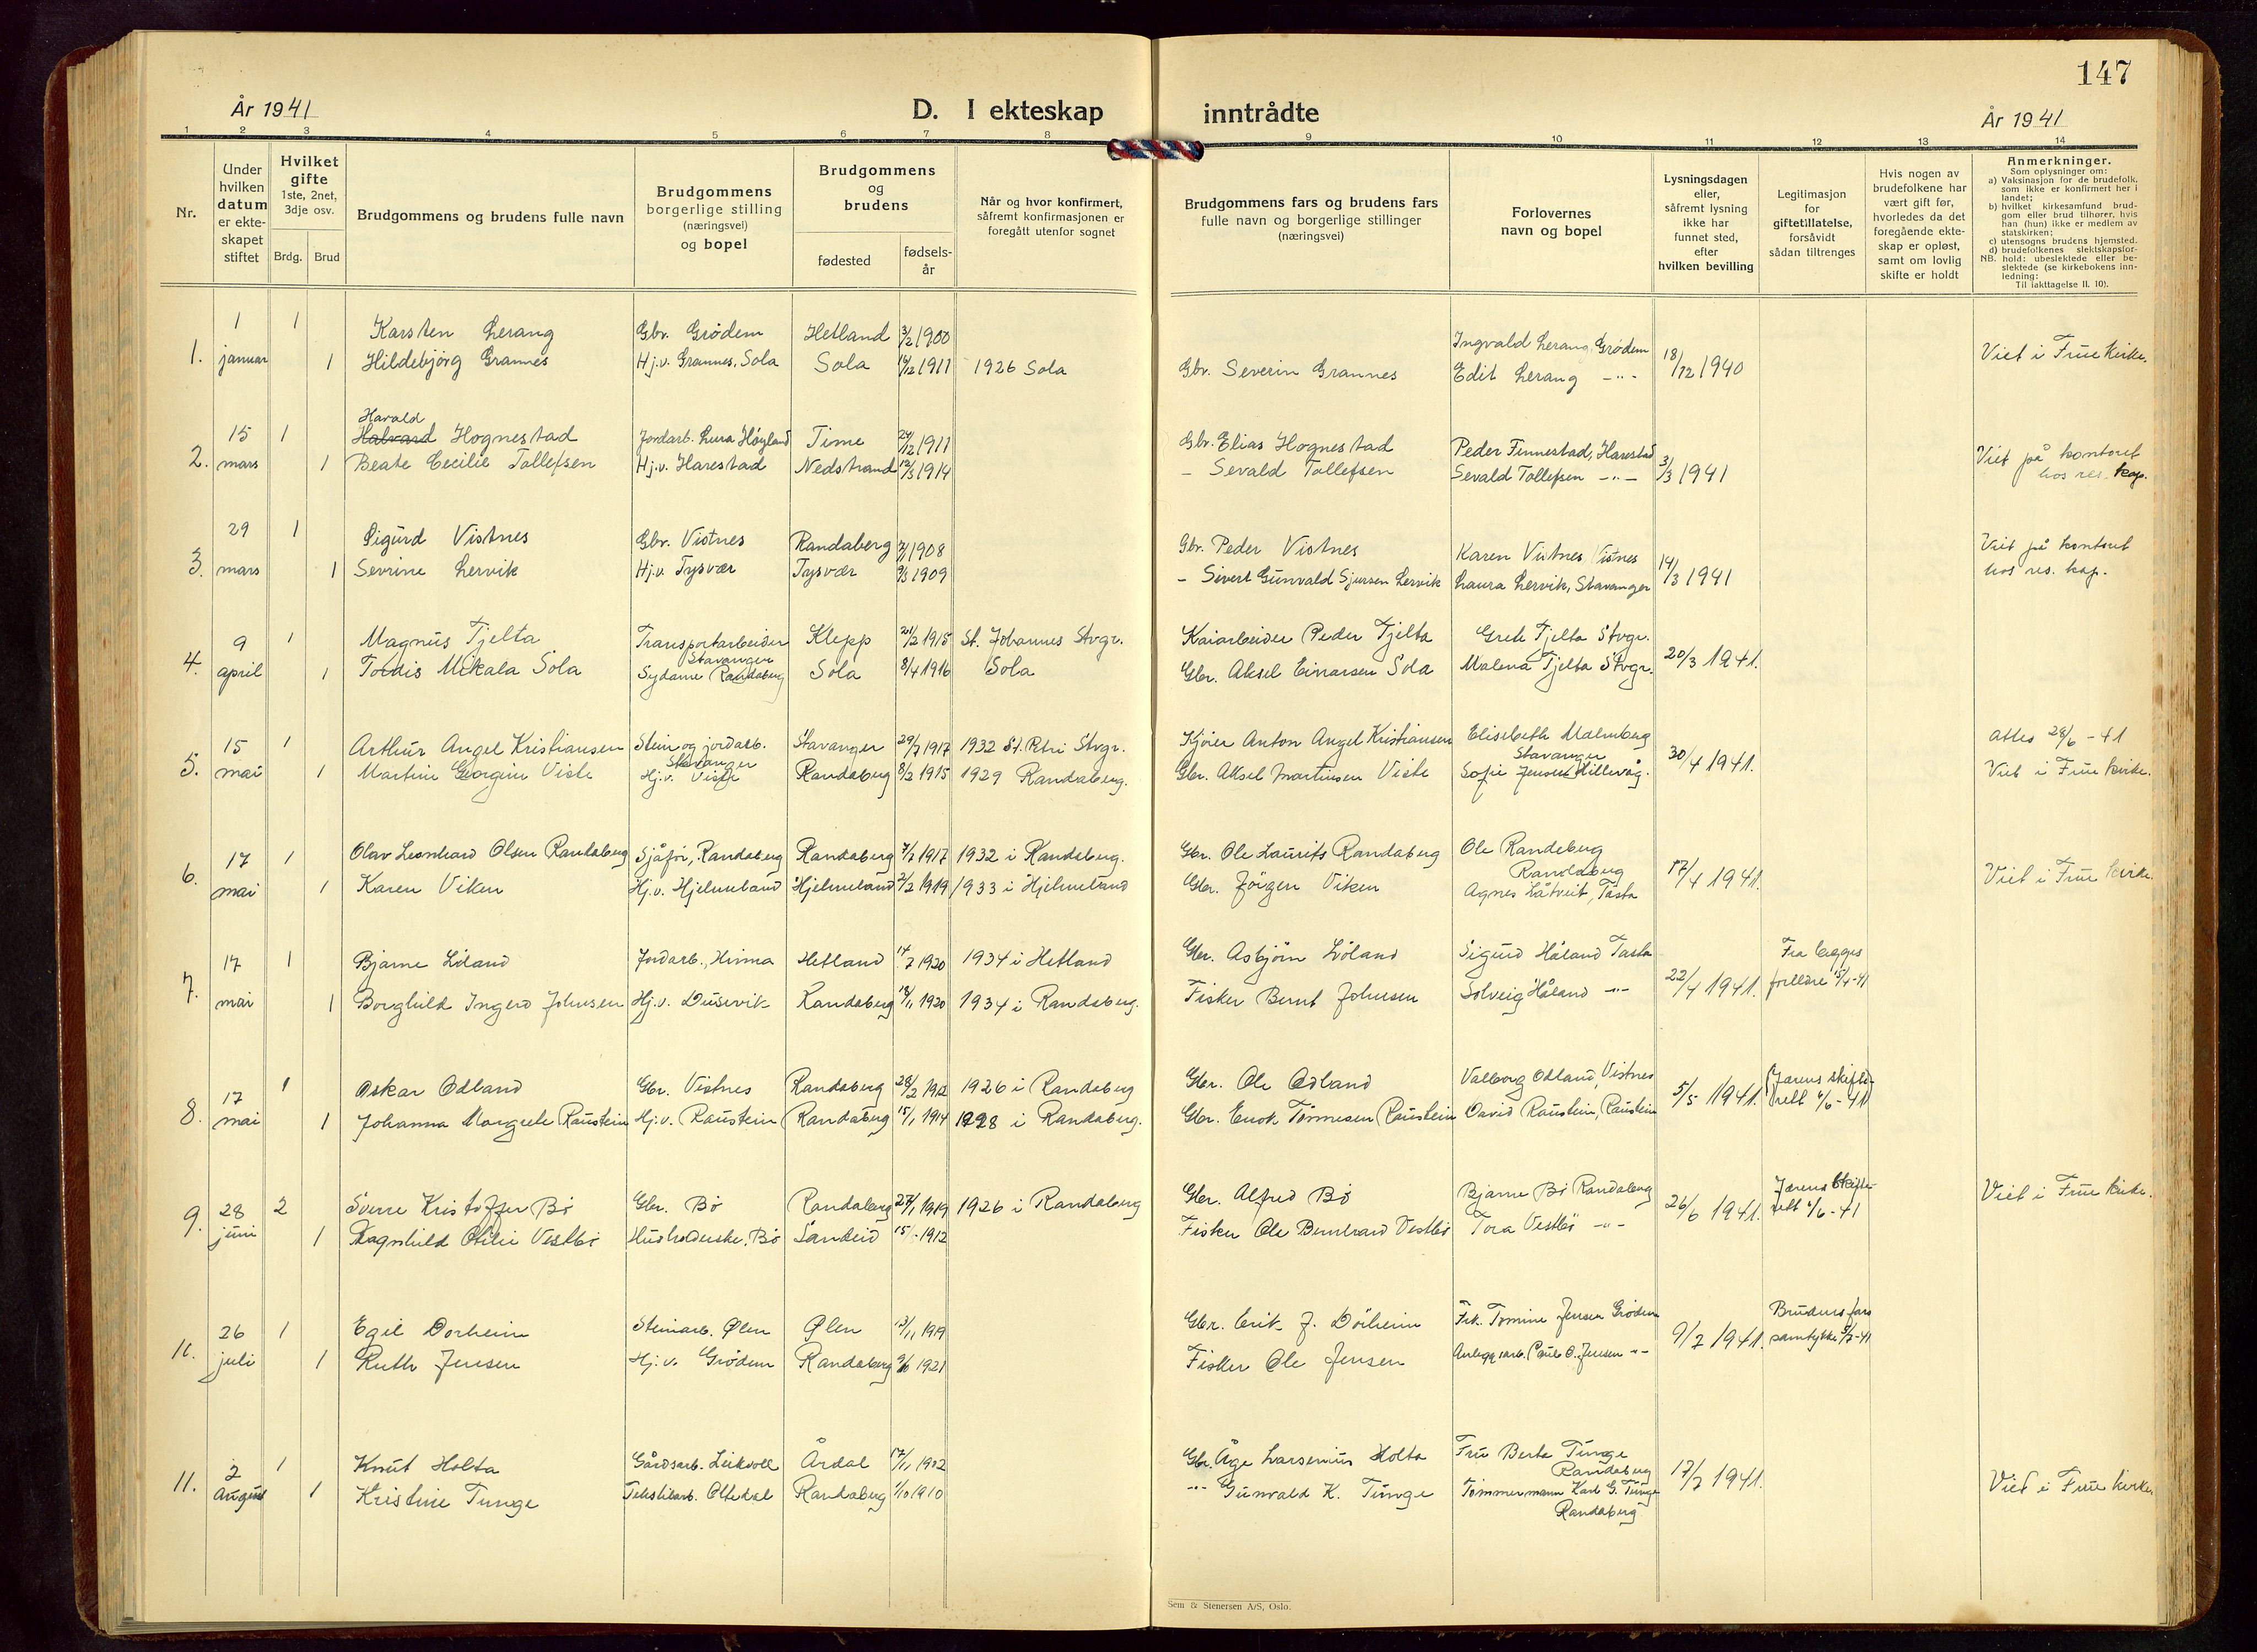 147
År 1941
D. I ekteskap inntrådte
År 1941
1 2 3 4 5 6 7 8 9 10 11 12 13 14
Nr.
Under hvilken datum er ekte-skapet stiftet
Hvilket gifte 1ste, 2net, 3dje osv.
Brdg. Brud
Brudgommens og brudens fulle navn
Brudgommens borgerlige stilling (næringsvei) og bopel
Brudgommens og brudens
fødested
fødsels-år
Når og hvor konfirmert, såfremt konfirmasjonen er foregått utenfor sognet
Brudgommens fars og brudens fars fulle navn og borgerlige stillinger (næringsvei)
Forlovernes navn og bopel
Lysningsdagen eller, såfremt lysning ikke har funnet sted, efter hvilken bevilling
Legitimasjon for giftetillatelse, forsåvidt sådan tiltrenges
Hvis nogen av brudefolkene har vært gift før, hvorledes da det foregående ekte-skap er opløst, samt om lovlig skifte er holdt
Anmerkninger.
Som oplysninger om:
a) Vaksinasjon for de brudefolk, som ikke er konfirmert her i landet;
b) hvilket kirkesamfund brud-gom eller brud tilhører, hvis han (hun) ikke er medlem av statskirken;
c) utensogns brudens hjemsted.
d) brudefolkenes slektskapsfor-hold: ubeslektede eller be-slektede (se kirkebokens inn-ledning:
NB.
Til iakttagelse II. 10).
1. 1 januar 1 Karsten Lerang Gbr. Grødem Hetland 3/2 1900 Ingvald Lerang, Grødem 18/12 1940 Viet i Frue kirke.
1 Hildebjørg Grannes Hj.v. Grannes, Sola Sola 1911 1926 Sola Gbr. Severin Grannes Edit Lerang -"-
Harald
2. 15 mars 1 Halvard Hognestad Jordarb. Lura Høyland Time 1911 Gbr. Elias Hognestad Peder Finnestad, Harestad 3/3 1941 Viet på kontoret
1 Beate Cecilie Tollefsen Hj.v. Harestad Nedstrand 1914 - Sevald Tollefsen Sevald Tollefsen -"- hos res. kap.
3. 29 mars 1 Sigurd Vistnes Gbr. Vistnes Randaberg 1908 Gbr. Peder Vistnes Karen Vistnes Vistnes 14/3 1941 Viet på kontoret
1 Sevrine Lervik Hj.v. Tysvær Tysvær 1909 - Sivert Gunvald Sjursen Lervik Laura Lervik, Stavanger hos res. kap.
4. 9 april 1 Magnus Tjelta Transportarbeider Stavanger Klepp 1915 St. Johannes Stvgr. Kaiarbeider Peder Tjelta Grete Tjelta Stvgr. 20/3 1941.
1 Tordis Mikala Sola Sydame Randaberg Sola 8/4 1916 Sola Gbr. Aksel Einarsen Sola Malena Tjelta Stvgr.
5. 15 mai 1 Arthur Angel Kristiansen Stein og jordarb. Stavanger Stavanger 29/7 1917 1932 St. Petri Stvgr. Kjører Anton Angel Kristiansen Elisabeth Malmberg Stavanger 30/4 1941. Attes 28/6 - 41
1 Martine Georgine Viste Hj.v. Viste Randaberg 8/2 1915 1929 Randaberg. Gbr. Aksel Martinsen Viste Sofie Jensen Hillevåg. Viet i Frue kirke.
6. 17 mai 1 Olav Leonhard Olsen Randaberg Sjåfør, Randaberg Randaberg 1917 1932 i Randaberg. Gbr. Ole Laurits Randaberg Ole Randeberg Randaberg 17/4 1941. Viet i Frue kirke.
1 Karen Viken Hj.v. Hjelmeland Hjelmeland 2/2 1919 1933 i Hjelmeland Gbr. Jörgen Viken Agnes Låtveit, Tasta
7. 17 mai 1 Bjarne Löland Jordarb., Hinna Hetland 1920 1934 i Hetland Gbr. Asbjörn Löland Sigurd Håland Tasta 22/4 1941. Fra begges
1 Borghild Ingerd Johnsen Hj.v. Dusevik Randaberg 18/1 1920 1934 i Randaberg. Fisker Bernt Johnsen Solveig Håland -"- foreldre 15/4-41
8. 17 mai 1 Oskar Odland Gbr. Vistnes Randaberg 28/2 1912 1926 i Randaberg Gbr. Ole Odland Valborg Odland, Vistnes 5/5 1941. Jærens skifte-
1 Johanna Margrete Raustein Hj.v. Raustein Randaberg 15/1 1914 1928 i Randaberg. Gbr. Enok Tönnesen Raustein David Raustein, Raustein rett 6/6-41
9. 28 juni 2 Sverre Kristoffer Bö Gbr. Bö Randaberg 1926 i Randaberg Gbr. Alfred Bö Bjarne Bö Randaberg 26/6 1941. Jærens skifte- Viet i Frue kirke.
1 Ragnhild Otilie Vestbö Husholderske, Bö Sandeid 1912 Fisker Ole Berntvard Vestbö Tora Vestbö -"- rett 6/6-41
10. 26 juli 1 Egil Dorheim Steinarb. Ølen Ølen 13/11 1919 Gbr. Erik J. Dörheim Frk. Tomine Jensen Grödem 9/7 1941. Brudens fars
1 Ruth Jensen Hj.v. Grödem Randaberg 1921 Fisker Ole Jensen Anleggsarb. Paul O. Jensen -"- samtykke 9/7-41
11. 2 August 1 Knut Holta Gårdsarb. Leikvoll Årdal 17/11 1902 Gbr. Åge Larsenius Holta Fru Berta Tunge Randaberg 17/7 1941. Viet i Frue kirke
1 Kristine Tunge Tekstilarb. Oltedal Randaberg 1/10 1910 -"- Gunvald K. Tunge Tømmermann Karl G. Tunge Randaberg
Sem & Stenersen A/S, Oslo.